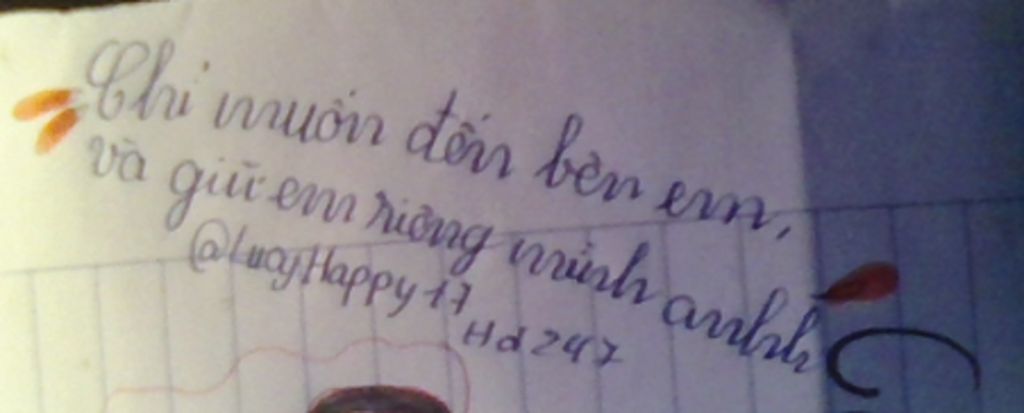 Chỉ muốn đến bên em,
và giữ em riêng mình anhh
@LucyHappy17
Hd247